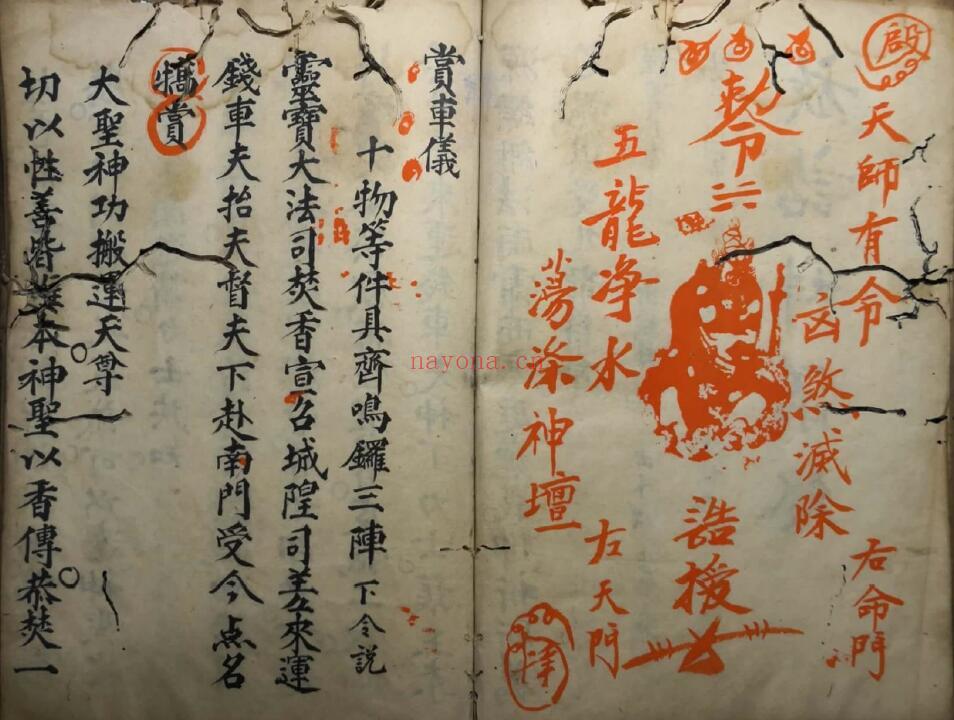 殿
天師有令
凶煞滅除
右命門
敕令
誥授
五龍净水
蕩滌神壇
左天門
賞車儀
十物等件具齊鳴鑼三陣下令説
靈寶大法司焚香宣召城隍司差來運
錢車夫抬夫督夫下赴南門受令点名
犒賞
大聖神功搬運天尊
切以性善皆 本神聖以香傳恭焚一
nayona.cn